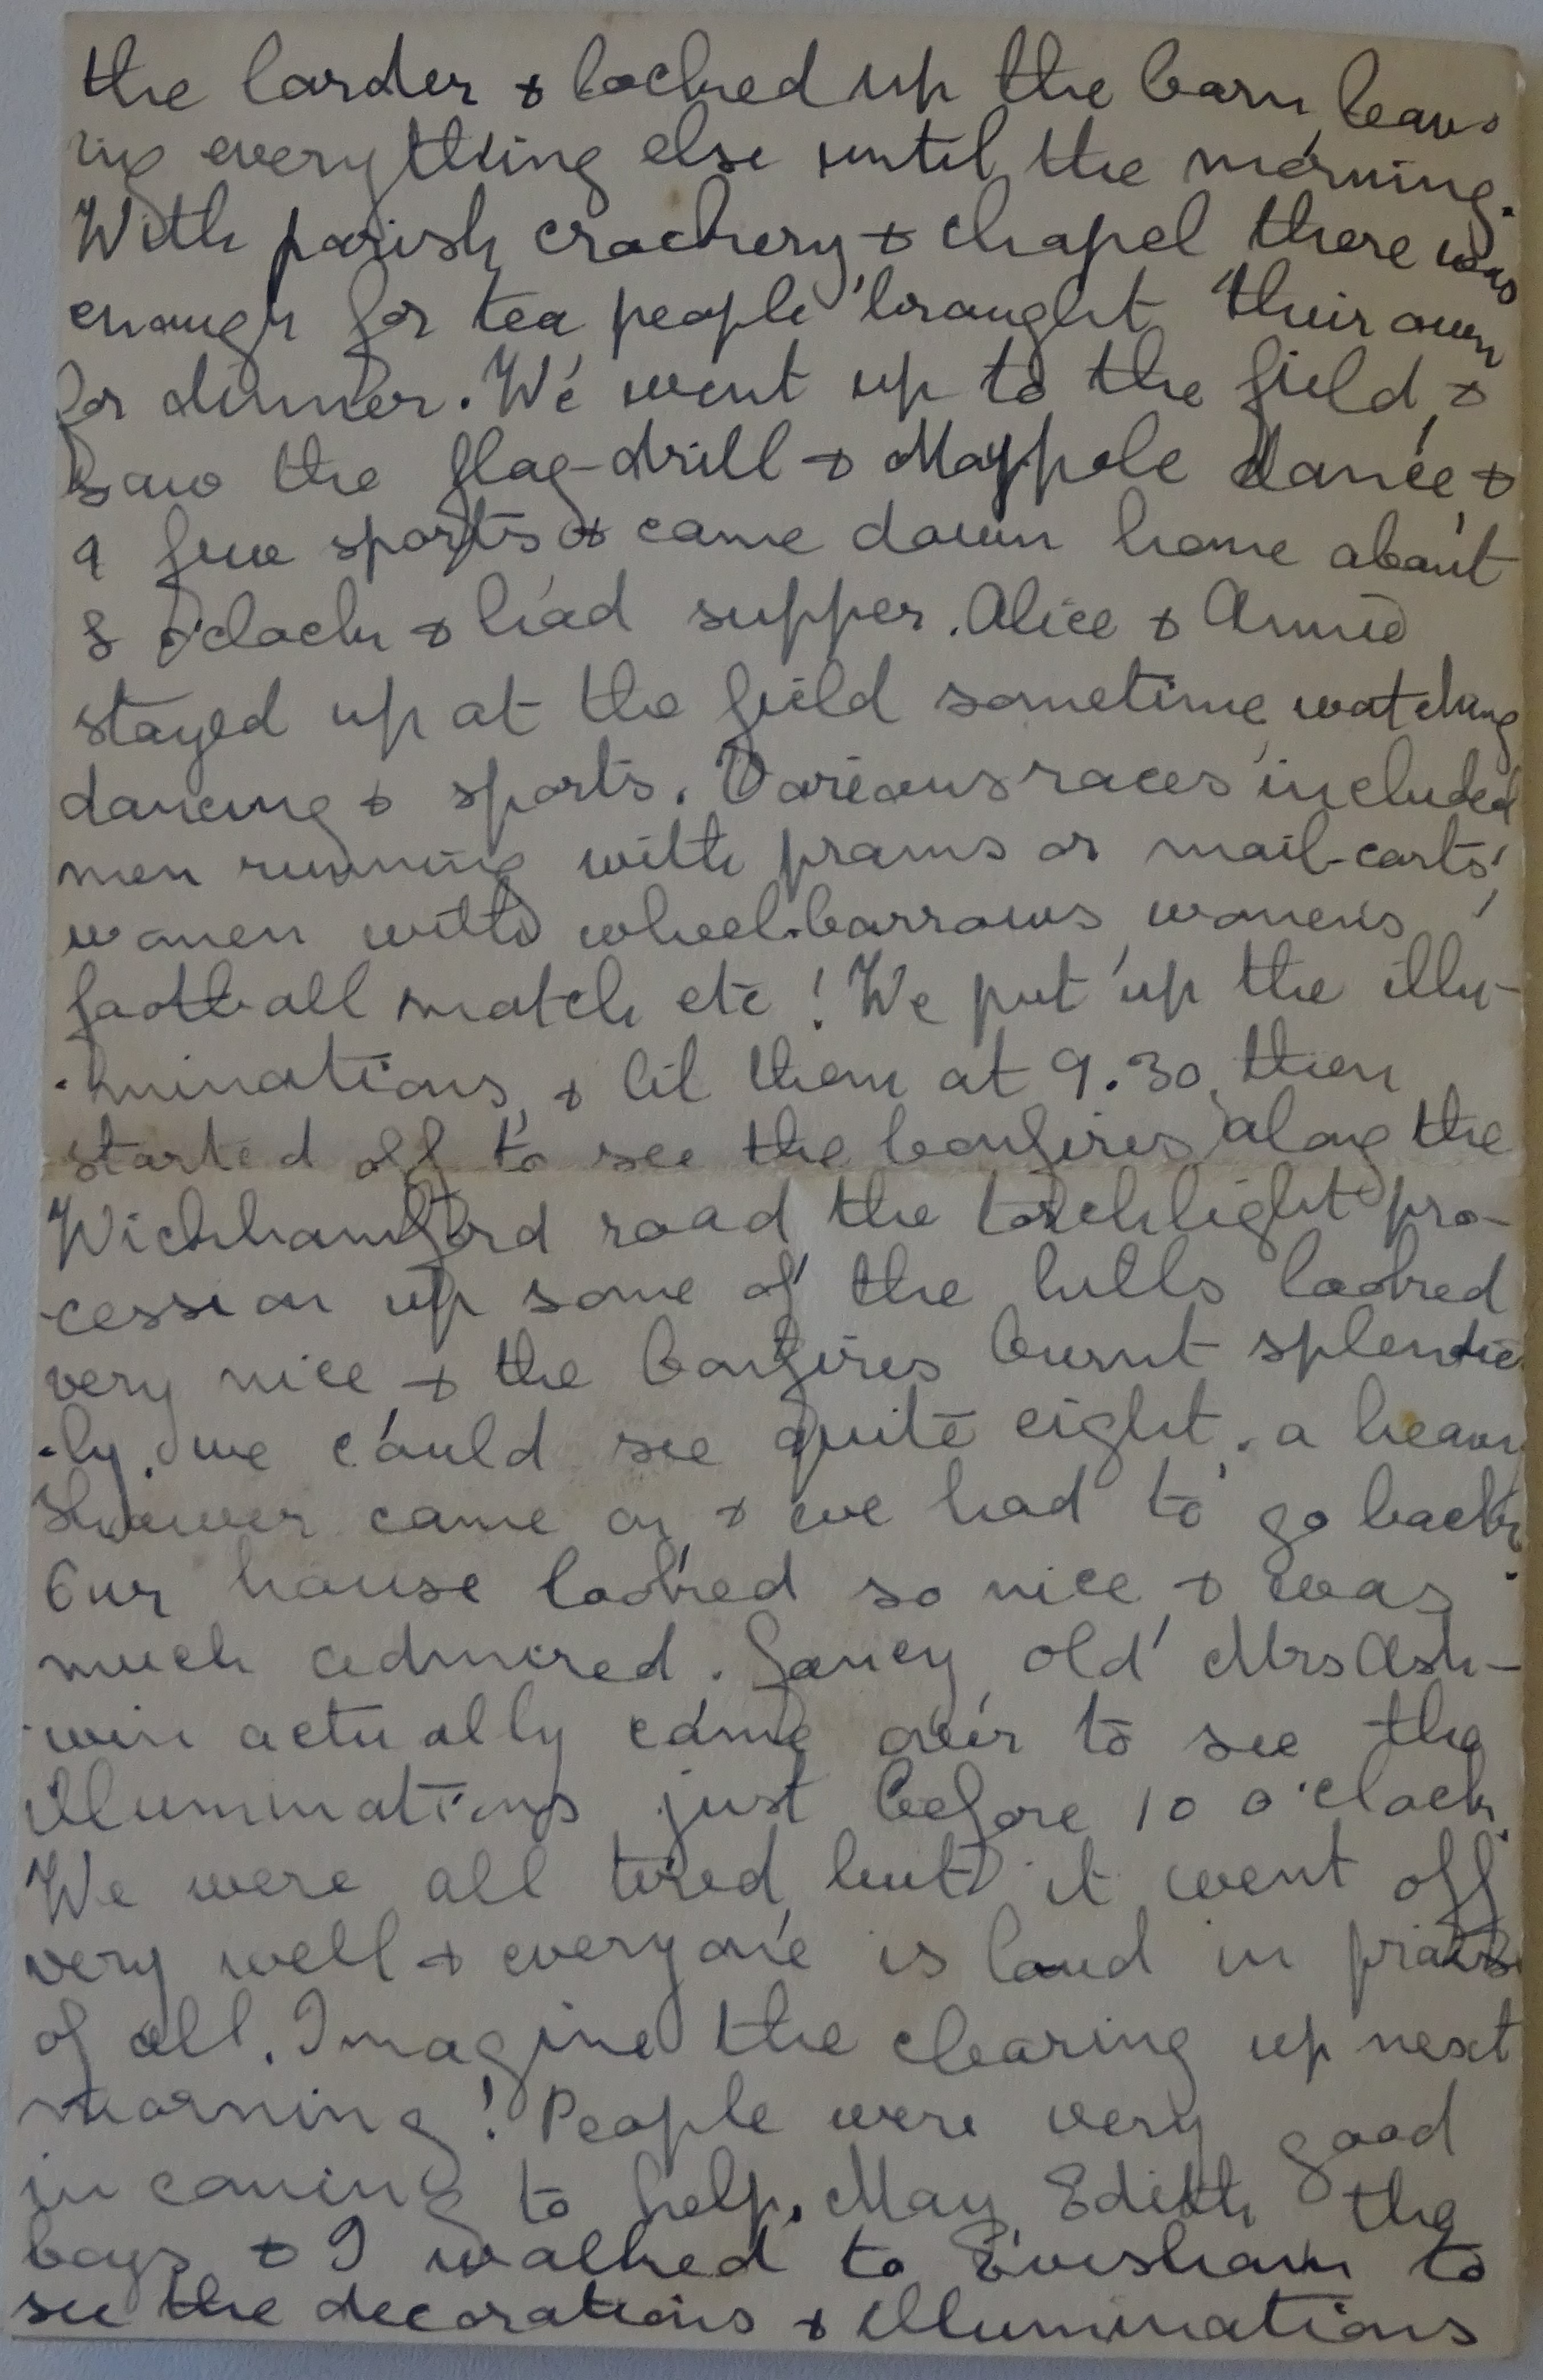 the larder & locked up the barn, leav-
ing everything else until the morning.
With parish crockery & chapel there was
enough for tea people brought their own
for dinner. We went up to the field, &
saw the flag-drill & Maypole dance, &
a few sports & came down home about
8 o'clock & had supper. Alice & Annie
stayed up at the field sometime, watching
dancing & sports. Various races included
men running with prams or mail-carts,
women with wheel-barrows, women's
football match etc! We put up the illu-
-minations, & lit them at 9.30, then
started off to see the bonfires, along the
Wickhamford road the torchlight pro-
-cession up some of the hills looked
very nice & the bonfires burnt splendid
-ly, we could see quite eight. a heavy
shower came on & we had to go back.
Our house looked so nice & was
much admired. Fancy old Mrs Ash-
-win actually came over to see the
illuminations just before 10 o'clock.
We were all tired, but it went off
very well & everyone is loud in praise
of all. Imagine the clearing up next
morning! People were very good
in coming to help. May, Edith the
boys & I walked to Evesham to
see the decorations & illuminations